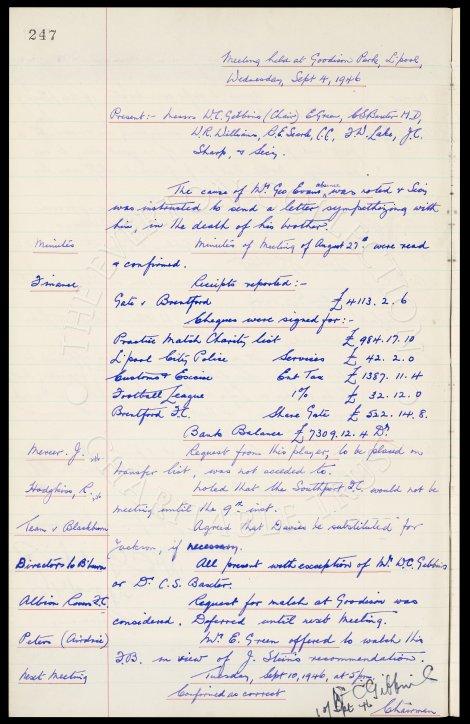 247
Meeting held at Goodison Park, L'pool,
Wednesday, Sept 4, 1946
Present:- Messrs W.C. Gibbins (Chair) E Green, C.S. Baxter M.D,
W.R. Williams, R.E. Searle, C.C, F.W. Lake, J.C.
Sharp, & Secy.
The cause of Mr Geo Evans absence was noted & Secy
was instructed to send a letter sympathizing with
him, in the death of his brother.
Minutes Minutes of Meeting of August 27th were read
& confirmed.
Finance Receipts reported:-
Gate v Brentford £4113.2.6
Cheques were signed for:-
Practice Match Charity list £984.17.10
L'pool City Police Services £42.2.0
Customs & Excise Ent Tax £1387.11.4
Football League 1% £32.12.0
Brentford F.C. Share Gate £522.14.8.
Bank Balance £7309.12.4 Dr
Mercer. J. Request from this player, to be placed on
transfer list, was not acceded to.
Hodgkins, R. Noted that the Southport F.C. would not be
meeting until the 9th inst.
Team v Blackburn Agreed that Davies be substituted for
Jackson, if necessary.
Directors to B'burn All present with exception of Mr. W.C. Gibbins
or Dr. C.S. Baxter.
Albion Rovers F.C. Request for match at Goodison was
considered. Deferred until next Meeting.
Peters (Airdrie) Mr. E. Green offered to watch this
F.B. in view of J. Stein's recommendation.
Next Meeting Tuesday, Sept 10, 1946, at 5pm.
Confirmed as correct
W C Gibbins
10 Sept 46 Chairman